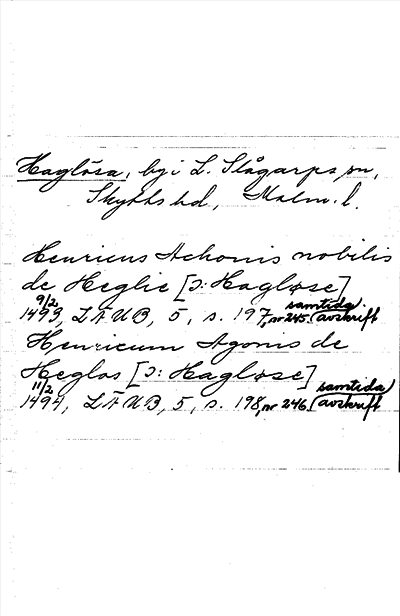 Haglösa, by i L. Slågarps sn,
Skytts hd, Malm. l.
Henricus Achonis nobilis
de Heglie [ɔ: Hagløse]
9/2 1493 LÄUB, 5, s. 197, nr 245 (samtida avskrift
Henricum Agonis de
Heglos [ɔ: Hagløse]
11/2 1494, LÄUB, 5, s. 198, nr 246 (samtida avskrift